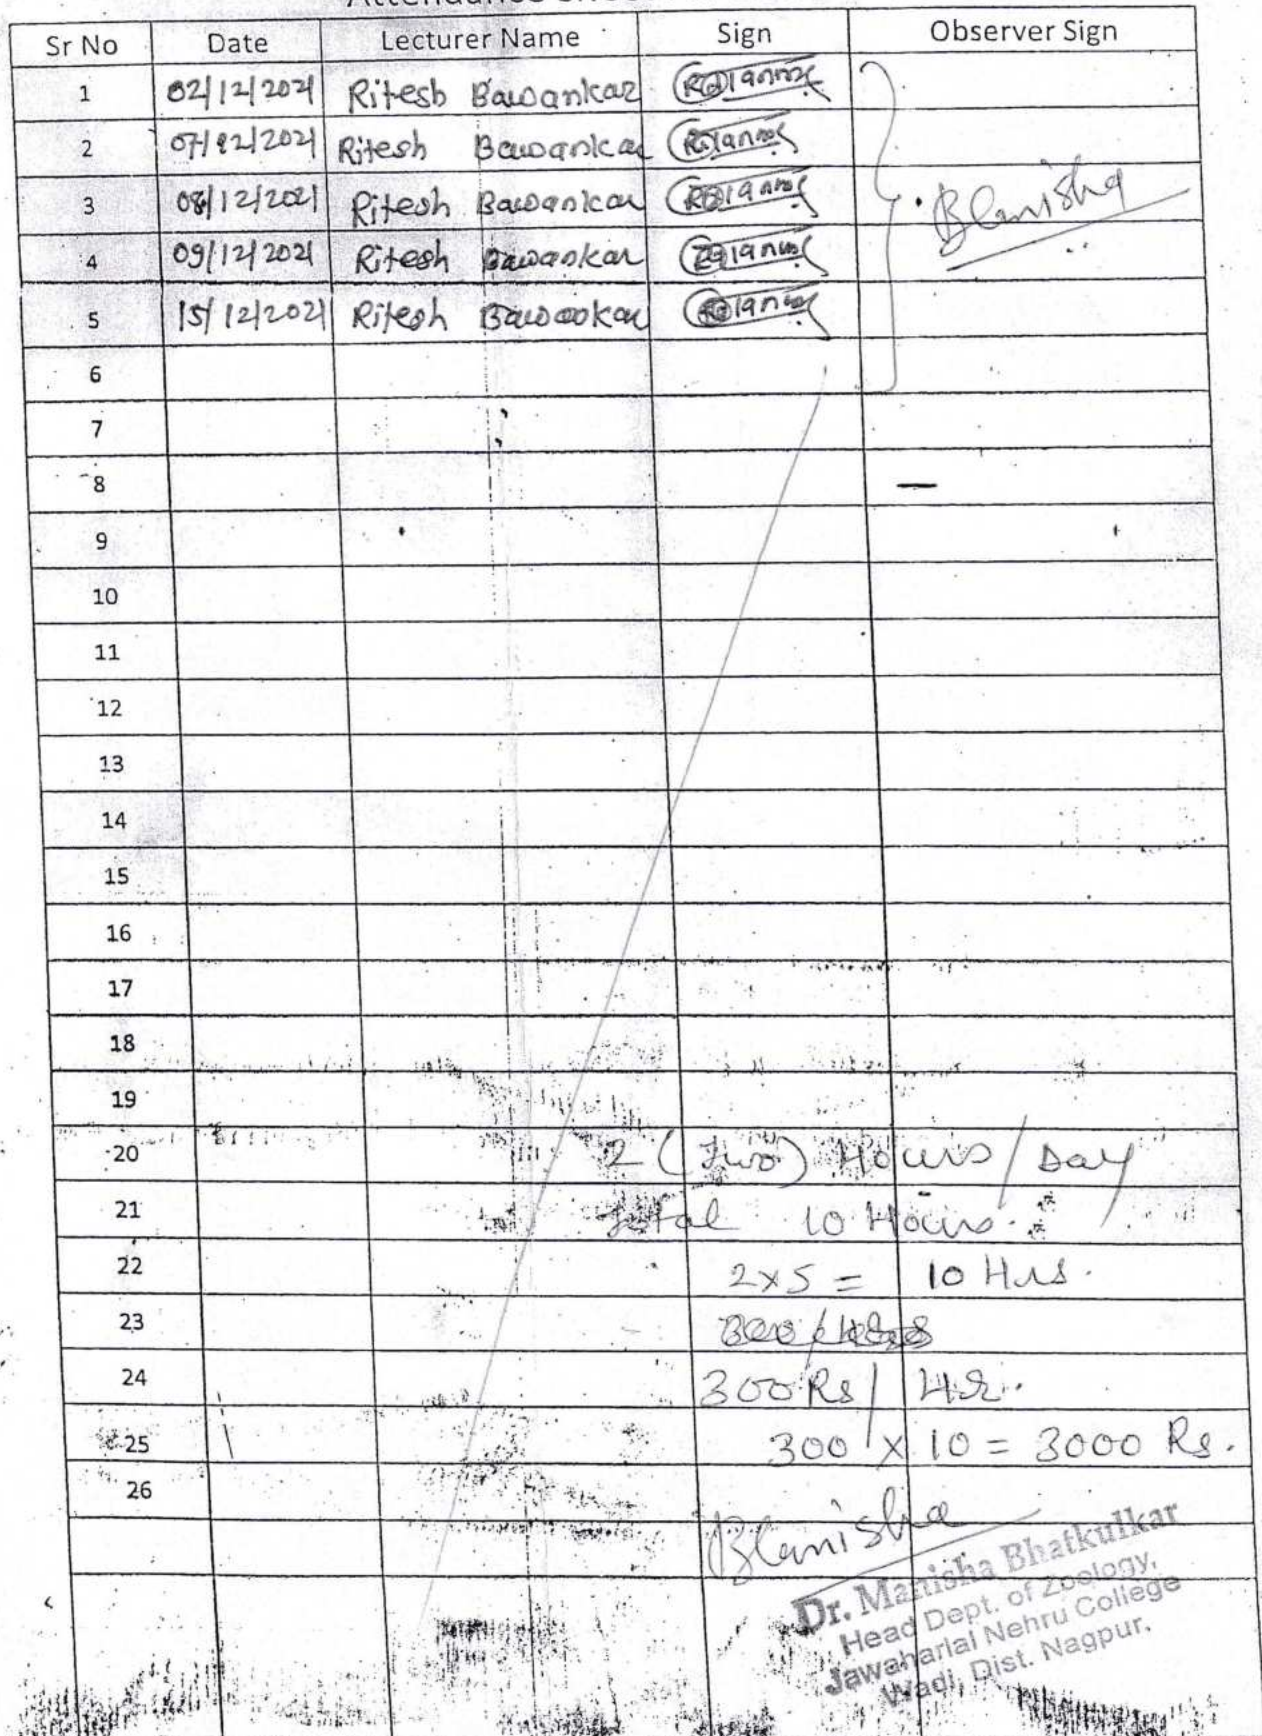 Attendance Sheet
Sr No Date Lecturer Name Sign Observer Sign
1 02/12/2021 Ritesh Bawankar
2 07/12/2021 Ritesh Bawankar
3 08/12/2021 Ritesh Bawankar
4 09/12/2021 Ritesh Bawankar
5 15/12/2021 Ritesh Bawankar
BManisha
6
7
8
9
10
11
12
13
14
15
16
17
18
19
20 2 (Two) Hours / Day
21 Total 10 Hours.
22 2 x 5 = 10 Hrs.
23
24 300 Rs / Hr.
25 300 x 10 = 3000 Rs.
26
BManisha
Dr. Manisha Bhatkulkar
Head Dept. of Zoology,
Jawaharlal Nehru College
Wadi, Dist. Nagpur.